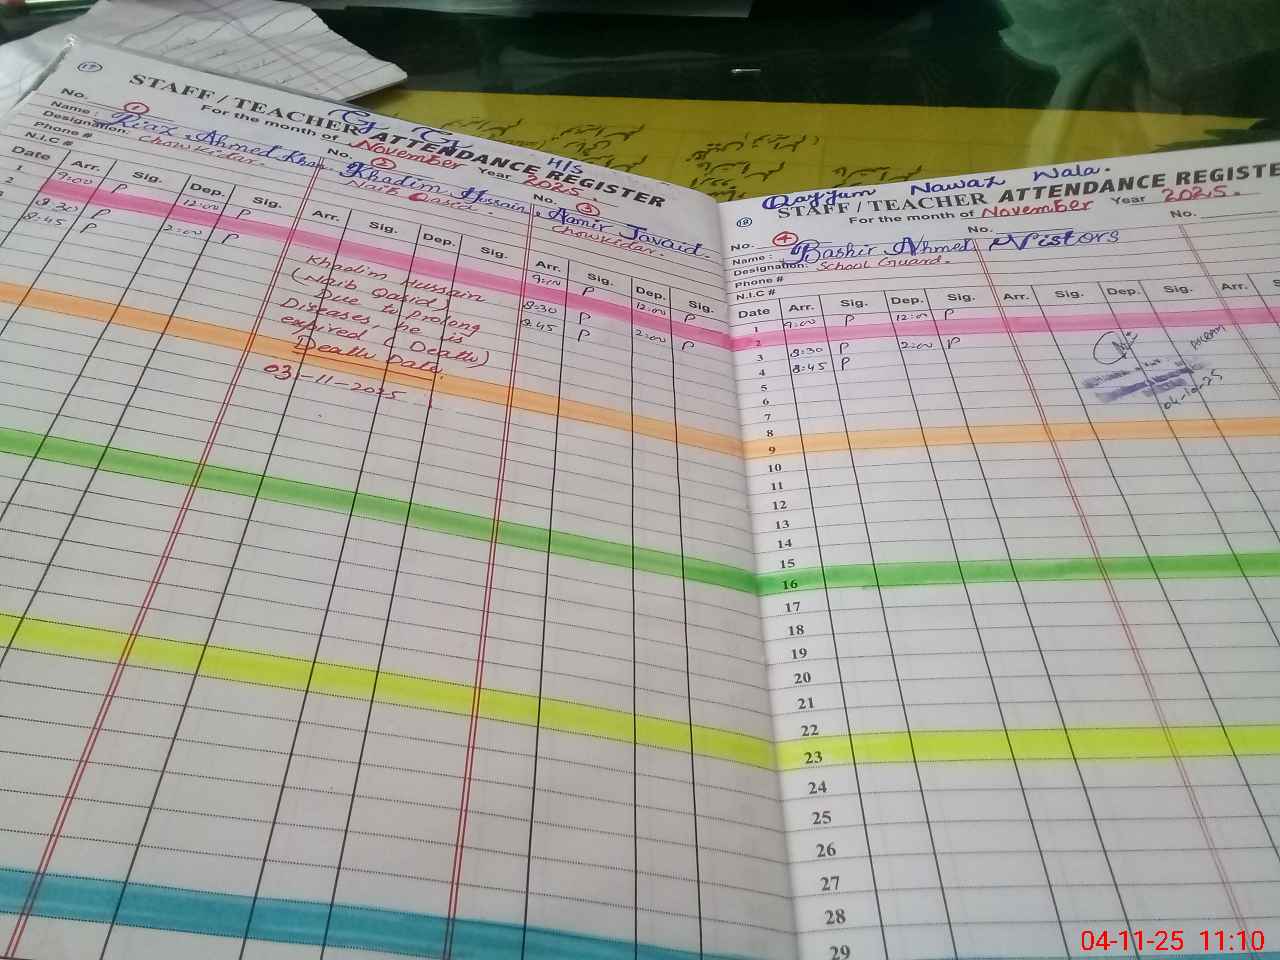 17
STAFF / TEACHER ATTENDANCE REGISTER
G G H/S
For the month of November Year 2025.
No. 1 No. 2 3
Name: Riaz Ahmed Khan Khadim Hussain Namir Javaid.
Designation: Chowkidar. Naib Qasid. Chowkidar.
Phone #
N.I.C #
Date Arr. Sig. Dep. Sig. Arr. Sig. Dep. Sig. Arr. Sig. Dep. Sig.
1 9:00 P 12:00 P 9:00 P 12:00 P
2
8:30 P 2:00 P 8:30 P 2:00 P
8:45 P 8:45 P
Khadim Hussain
(Naib Qasid)
Due to prolong
Diseases, he is
expired (Death)
Death Date.
03-11-2025
Qayyum Nawaz Wala.
18
STAFF / TEACHER ATTENDANCE REGISTE
For the month of November Year 2025.
No. 4 No. No.
Name: Bashir Ahmed Vistors
Designation: School Guard.
Phone #
N.I.C #
Date Arr. Sig. Dep. Sig. Arr. Sig. Dep. Sig. Arr. S
1 9:00 P 12:00 P
2
3 8:30 P 2:00 P
4 8:45 P
5
6
7
8
9
10
11
12
13
14
15
16
17
18
19
20
21
22
23
24
25
26
27
28
29
04-11-25 11:10